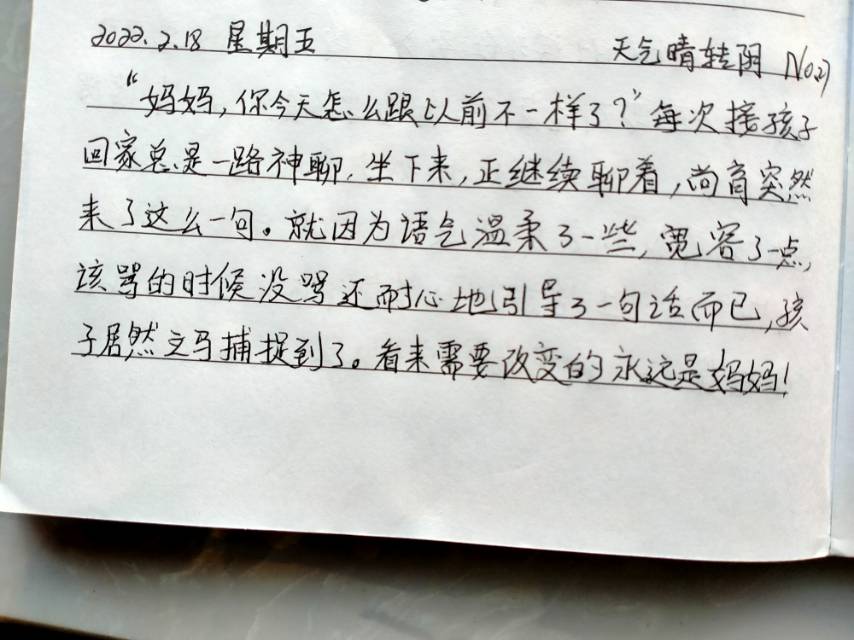 2022.2.18 星期五 天气晴转阴 No27
“妈妈,你今天怎么跟以前不一样了?”每次接孩子
回家总是一路神聊,坐下来,正继续聊着,尚育突然
来了这么一句。就因为语气温柔了一些,宽容了一点,
该骂的时候没骂还耐心地引导了一句话而已,孩
子居然立马捕捉到了。看来需要改变的永远是妈妈!